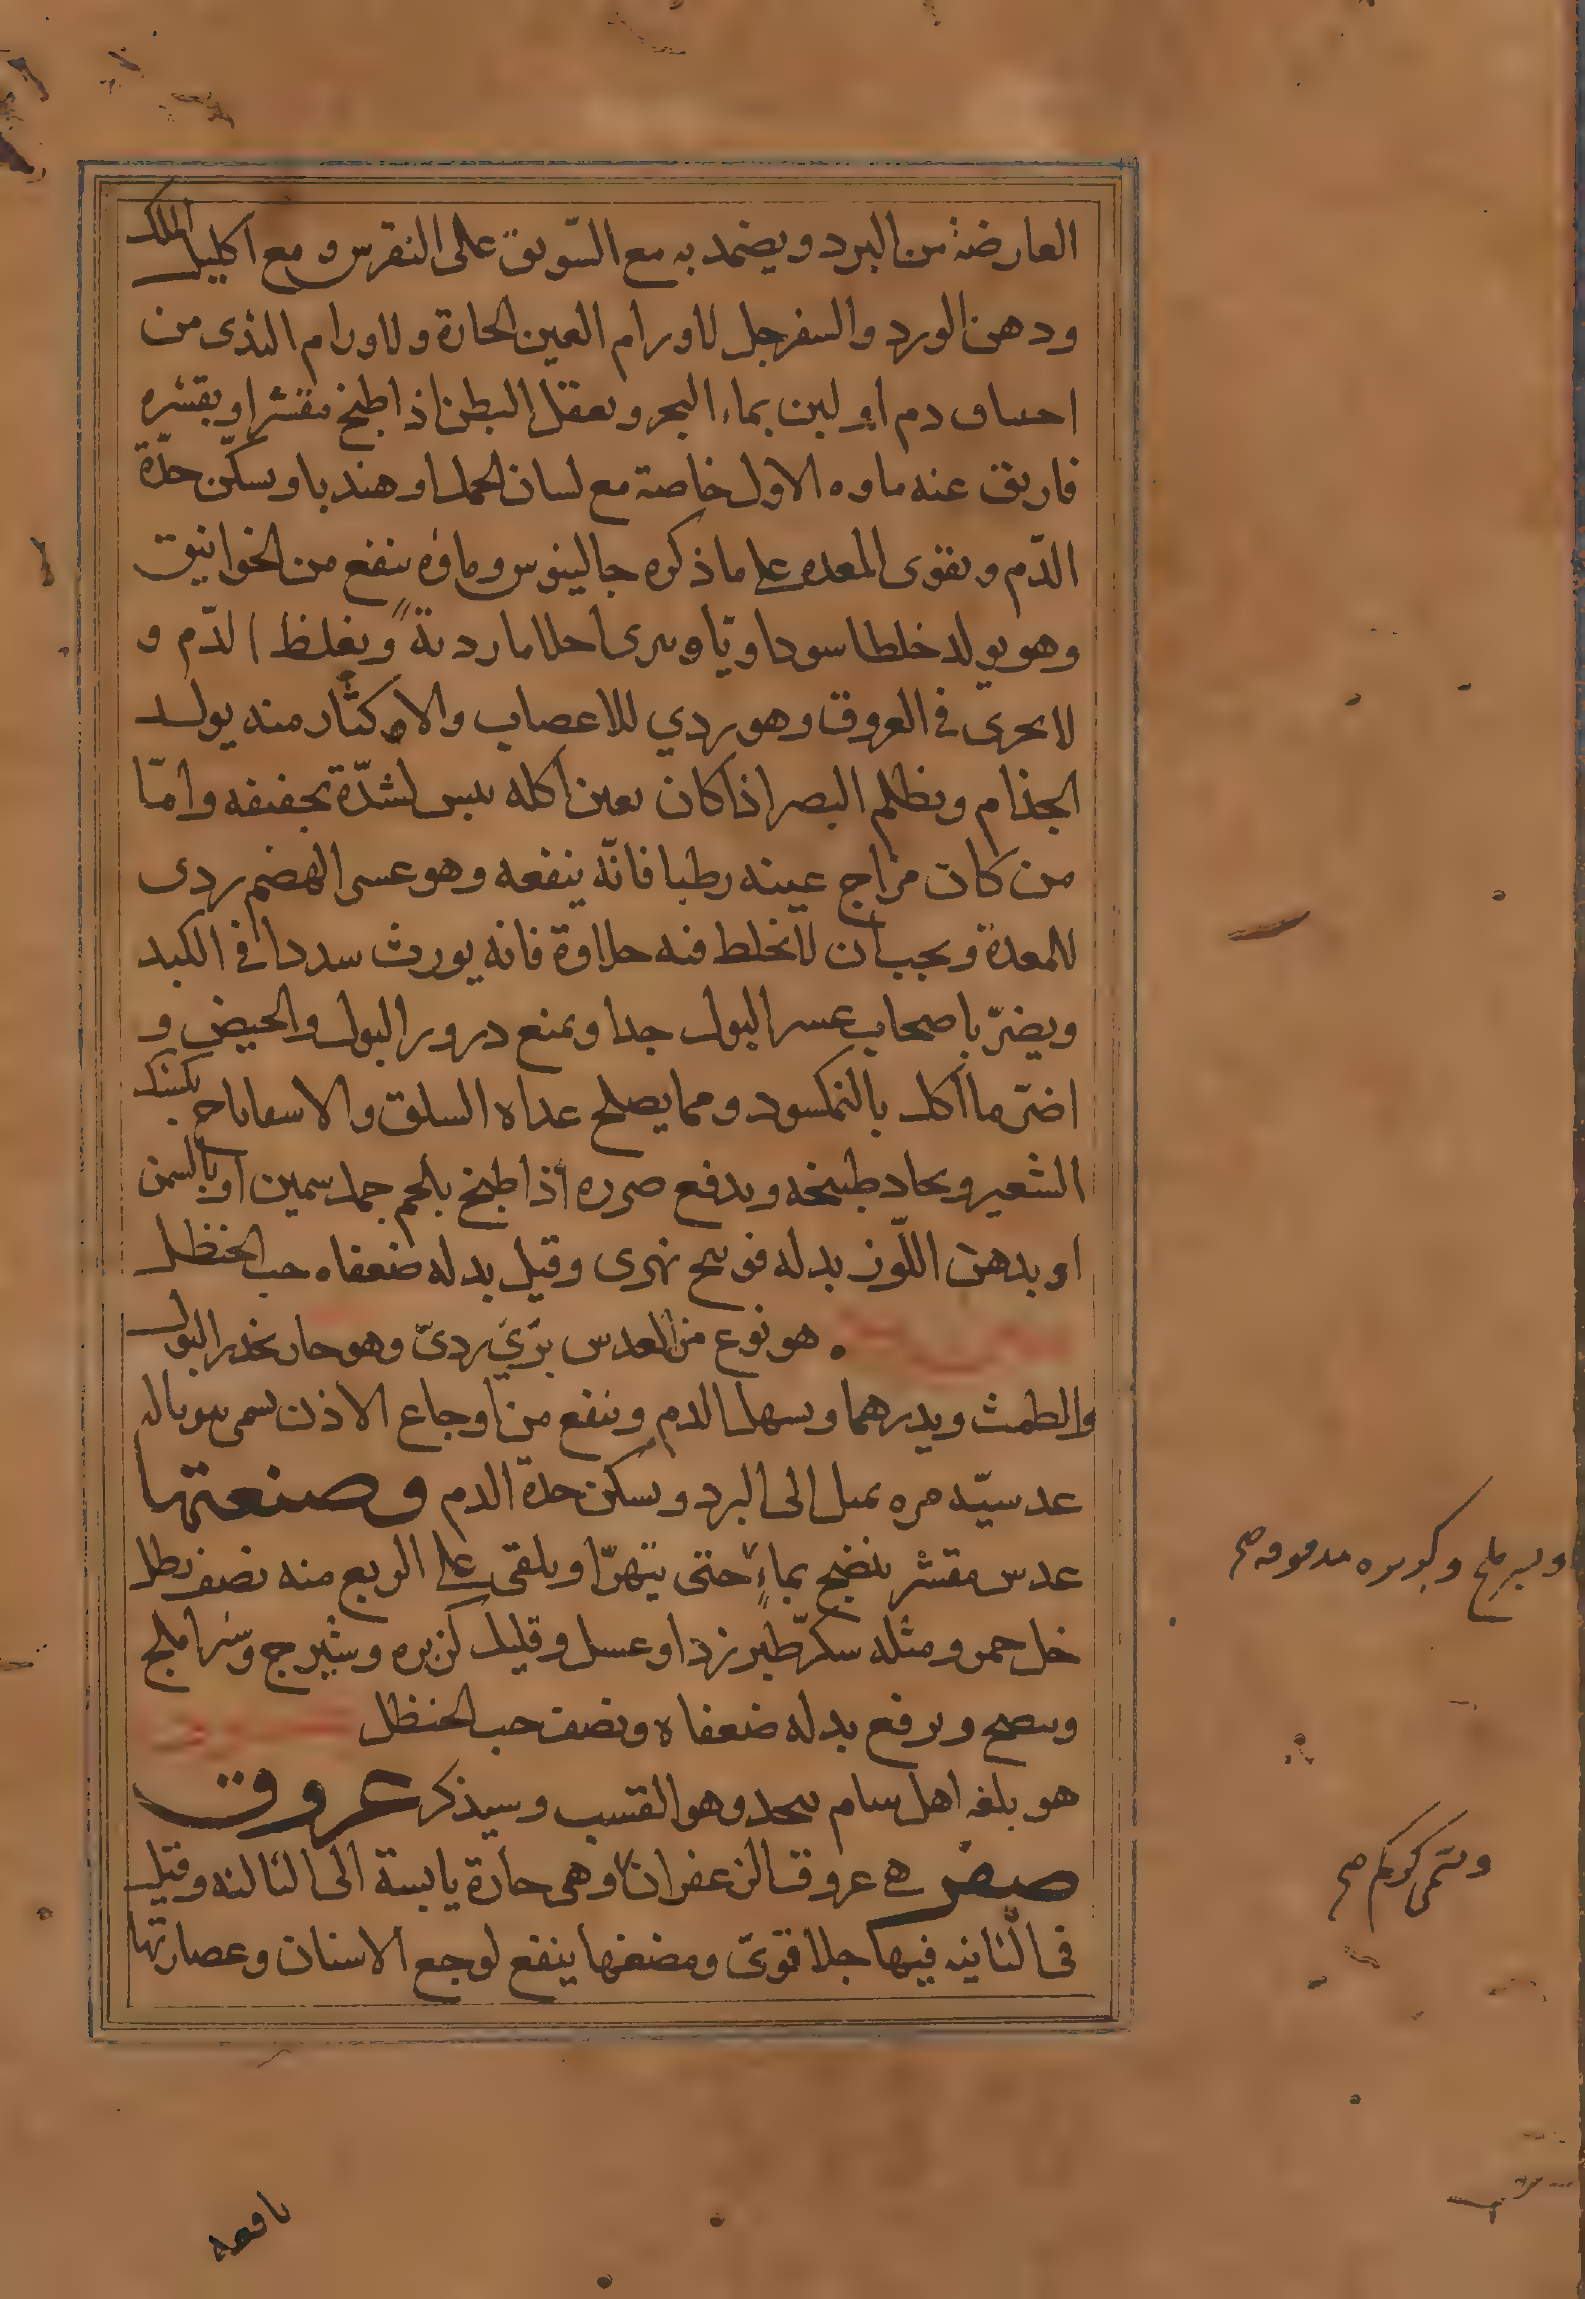 العارضة من البرد ويضمد به مع السّويق على النقرس ومع اكليل الملك
ودهن الورد والسفرجل لاورام العين الحارة ولاورام الثدى من
احساف دم او لبن بماء البحر ويعقل البطن اذا طبخ مقشرا وبقشره
فاريق عنه ماوه الاول خاصة مع لسان الحمل او هندبا ويسكّن حدّة
الدّم ويقوى المعده على ما ذكره جالينوس وماؤه ينفع من الخوانيق
وهو يولد خلطا سوداويّا ويرى احلاما رديةً ويغلظ الدّم و
لا يجرى فى العروق وهو ردي للاعصاب والاكثار منه يولد
الجذام ويظلم البصر اذا كان بعين اكله يبس لشدّة تجفيفه وامّا
من كان مزاج عينه رطبا فانّه ينفعه وهو عسى الهضم ردى
للمعدة ويجب ان لا يخلط فيه حلاوة فانه يورث سددا فى الكبد
ويضرّ باصحاب عسر البول جدا ويمنع درور البول والحيض و
اضرّ ما اكل بالنمكسود ومما يصلح عداه السلق والاسفاناخ بكشك
الشعير ويجاد طبيخه ويدفع ضرره اذا طبخ بلحم حمل سمين او بالسمن
او بدهن اللّوز بدله فوتنج نهرى وقيل بدله ضعفاه حب الحنظل
هو نوع من العدس برّيّ ردىّ وهو حار يخدر البول
والطمث ويدرهما ويسهل الدم وينفع من اوجاع الاذن
عدسيّه مره يميل الى البرد ويسكن حدة الدم وصنعتها
عدس مقشر ينضج بماءٍ حتى يتهرّا ويلقى على الربع منه نصف رطل
خل خمر ومثله سكر طبرزد او عسل وقليل كزبره وشيرج
وينضج ويرفع بدله ضعفاه ونصف حب الحنظل
هو بلغه اهل وهو القسب وسيذكر عروق
صفر هى عروق الزعفران وهى حارة يابسة الى الثالثه وقيل
فى الثانيه فيها جلا قوىّ ومضغها ينفع لوجع الاسنان وعصارتها
ويسير ملح وكزبره مدقوقه صح
وتسمى كركم صح
نافعه